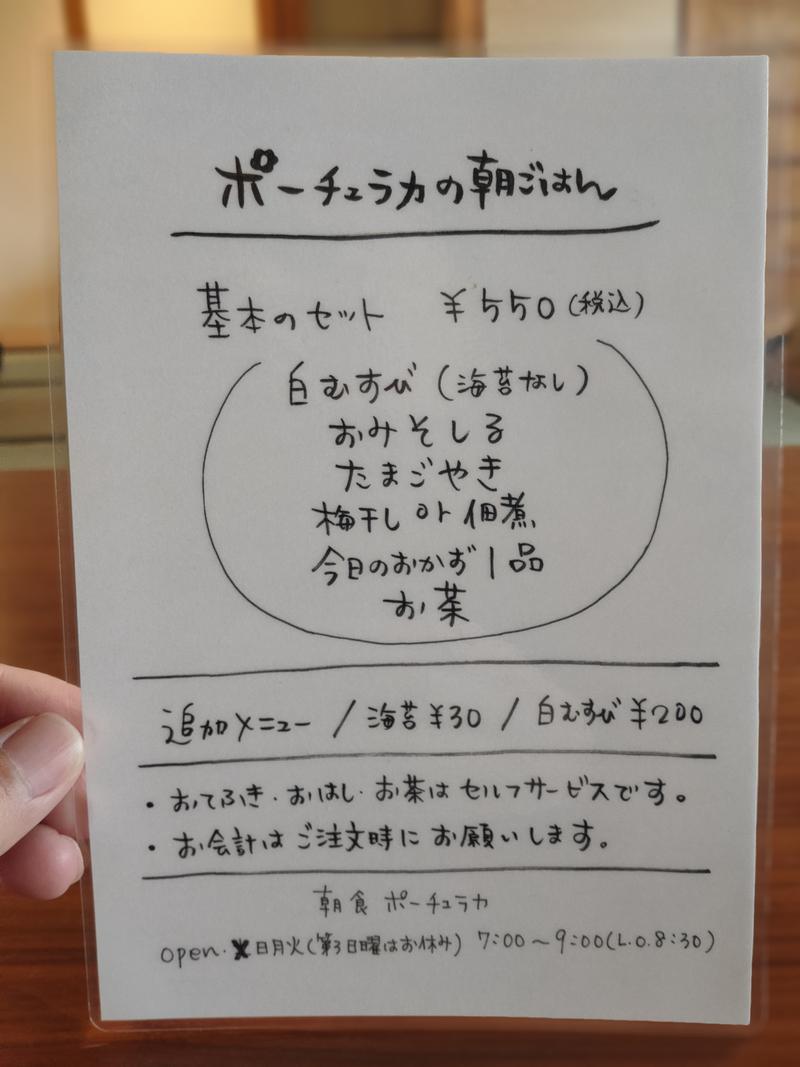 ポーチュラカの朝ごはん
基本のセット ¥550(税込)
白むすび(海苔なし)
おみそしる
たまごやき
梅干し or 佃煮
今日のおかず1品
お茶
追加メニュー / 海苔¥30 / 白むすび¥200
・おてふき・おはし・お茶はセルフサービスです。
・お会計はご注文時にお願いします。
朝食 ポーチュラカ
open・日月火(第3日曜はお休み) 7:00〜9:00(L.O.8:30)